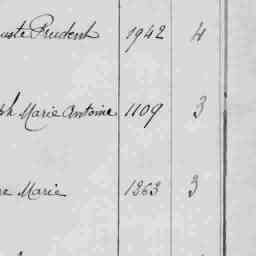 uste Prudent 1942 4
ph Marie Antoine 1109 3
re Marie 1363 3